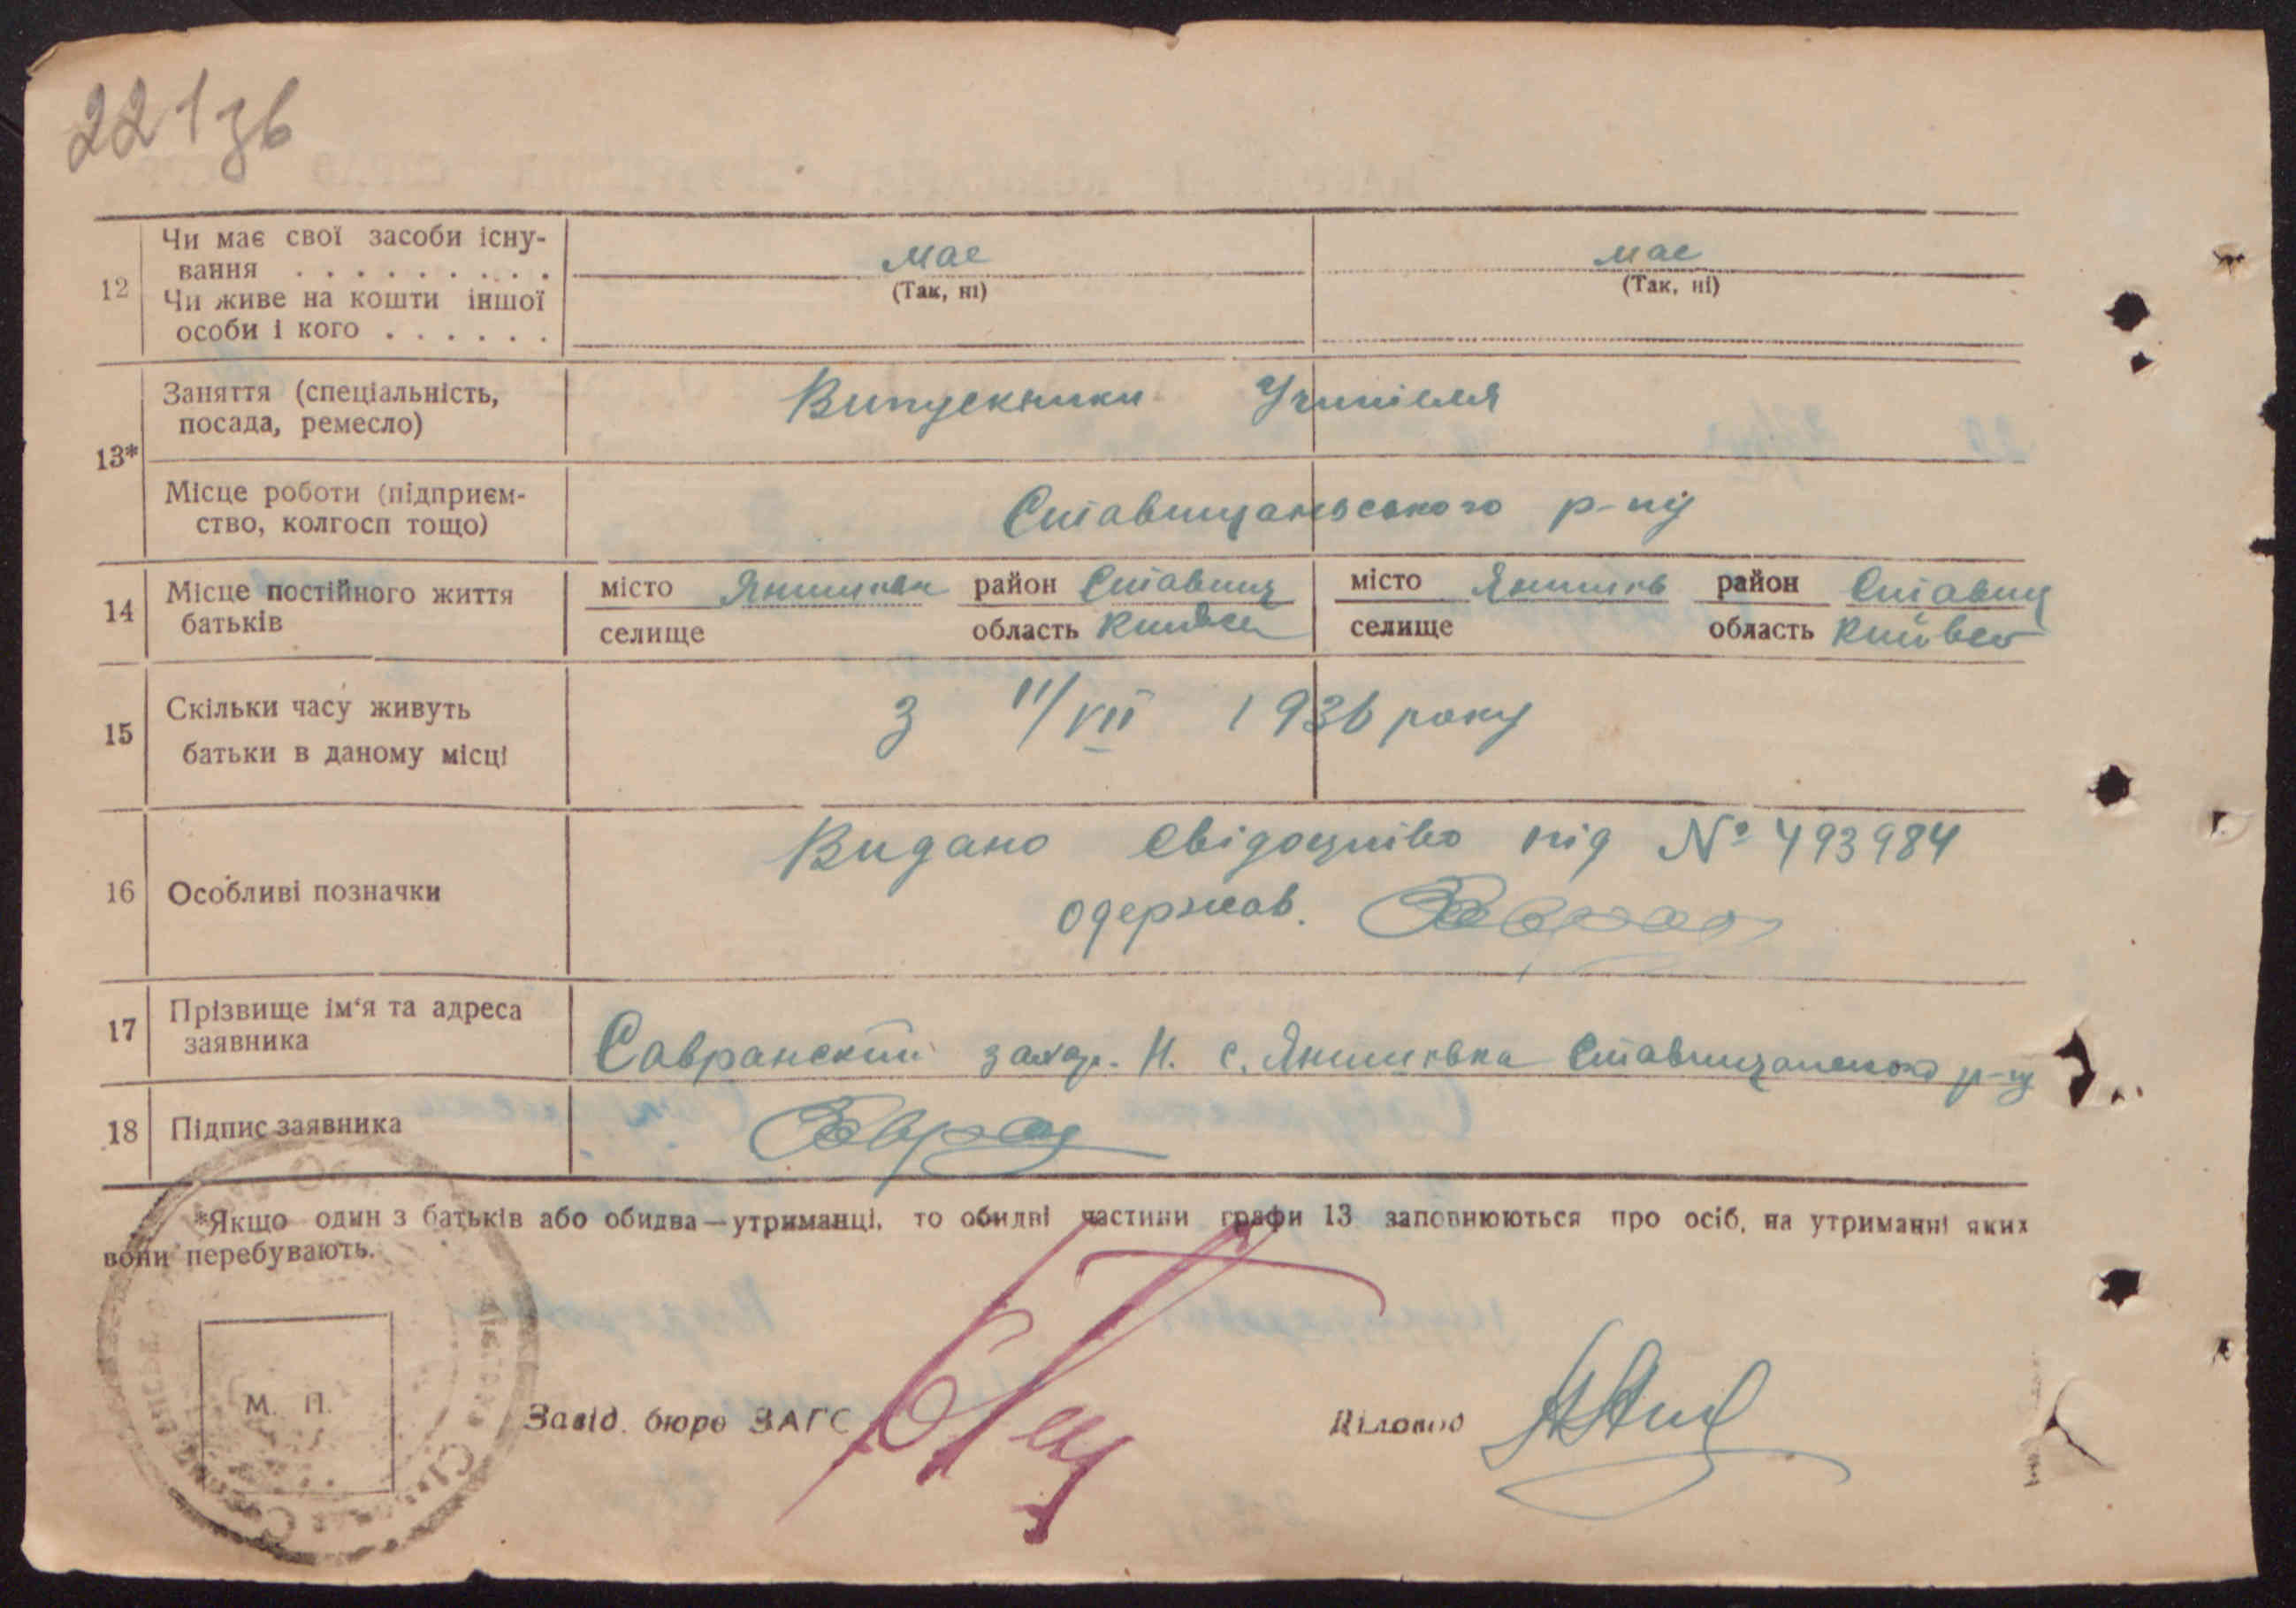 221 зв
12 Чи має свої засоби існу-
вання . . . . . . . . . має має
(Так, ні) (Так, ні)
Чи живе на кошти іншої
особи і кого . . . . . .
13* Заняття (спеціальність,
посада, ремесло) Випускники Учителя
Місце роботи (підприєм-
ство, колгосп тощо) Ставищанського р-ну
14 Місце постійного життя
батьків
місто Янишівка район Ставищ місто Янишів район Ставищ
селище область Київськ селище область Київсь
15 Скільки часу живуть
батьки в даному місці з 11/VII 1936 року
16 Особливі позначки Видано Свідоцтво під № 493984
одержав.
17 Прізвище ім'я та адреса
заявника Савранский Н. с. Янишівка Ставищанського р-ну
18 Підпис заявника
*Якщо один з батьків або обидва—утриманці, то обидві частини графи 13 заповнюються про осіб, на утриманні яких
вони перебувають.
М. П.
Завід. бюро ЗАГС Діловод